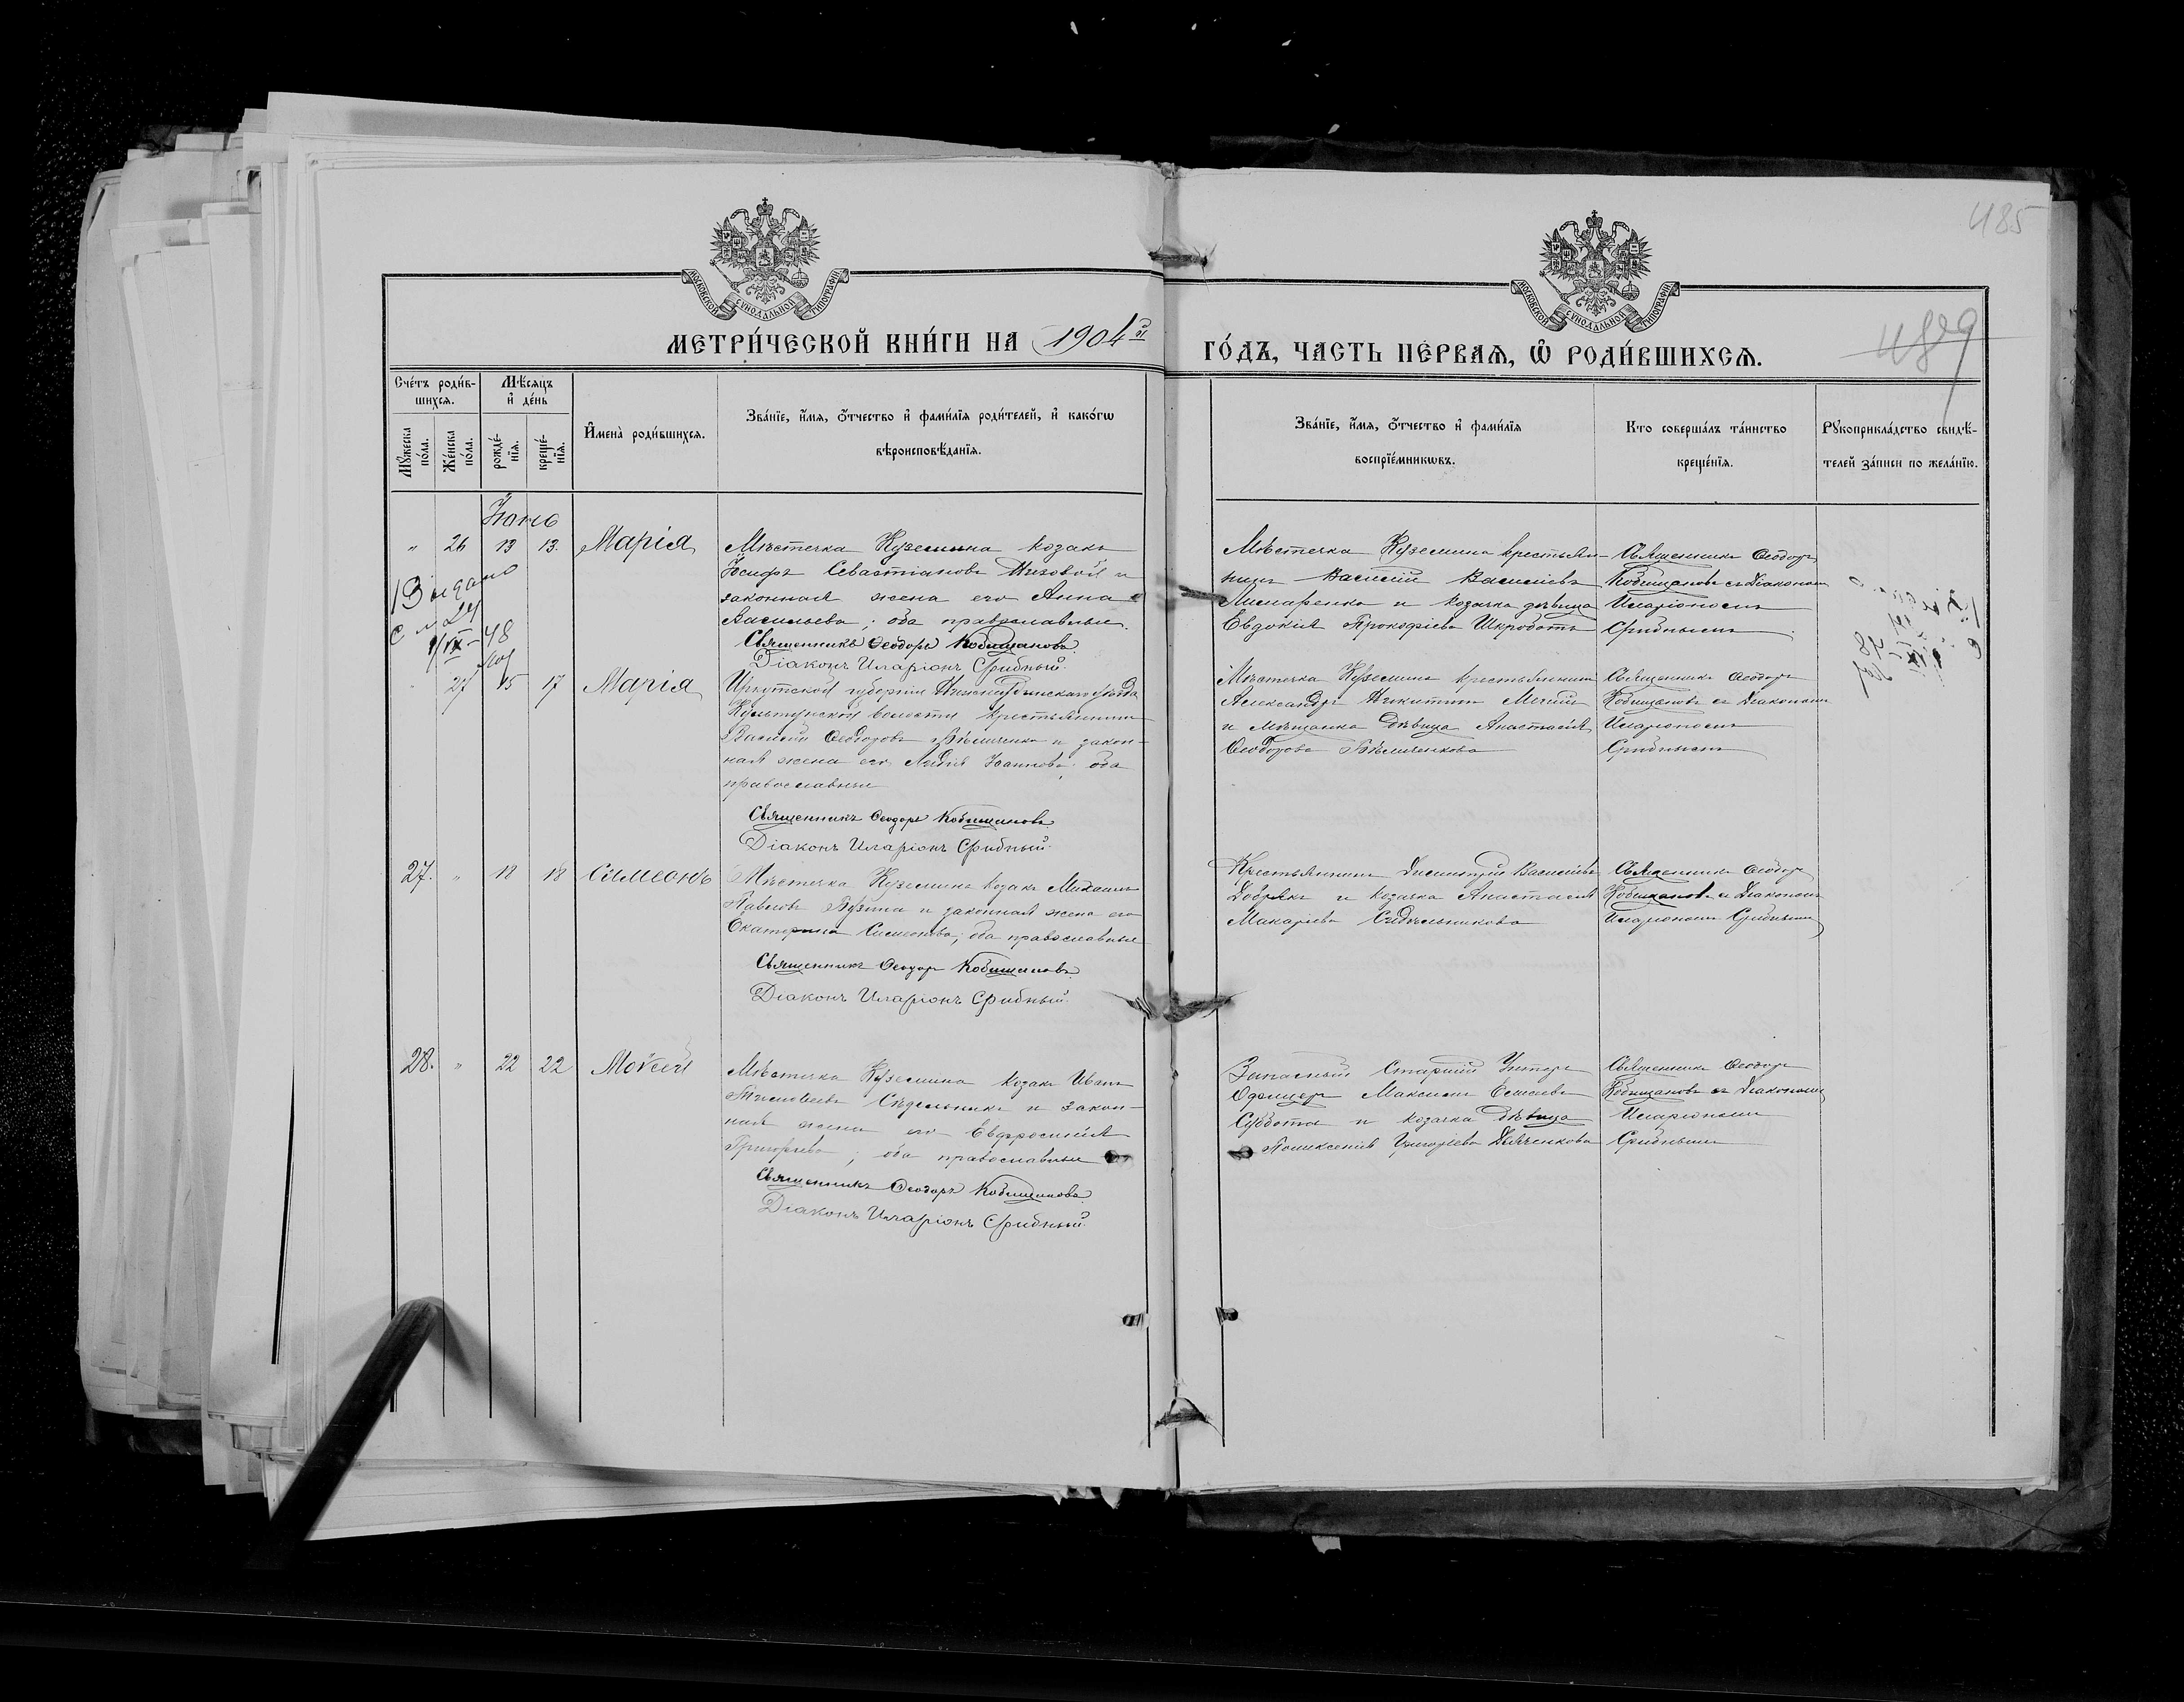 485
МОСКОВСКОЙ СУНОДАЛЬНОЙ ТИПОГРАФІИ
МОСКОВСКОЙ СУНОДАЛЬНОЙ ТИПОГРАФІИ
МЕТРИ́ЧЕСКОЙ КНИ́ГИ НА 1904й
ГО́ДЪ, ЧАСТЬ ПЕ́РВАѦ, Ѡ РОДИ́ВШИХСѦ.
Сче́тъ роди́в-
шихсѧ.
Мѣ́сѧцъ
и҆ де́нь
Мꙋ́жеска по́ла.
Же́нска по́ла.
рожде́-
нїѧ.
креще́-
нїѧ.
И҆мена̀ роди́вшихсѧ.
Зва́нїе, и҆́мѧ, ѻ҆́тчество и҆ фами́лїѧ роди́телей, и҆ како́гѡ
вѣроисповѣ́данїѧ.
Зва́нїе, и҆́мѧ, ѻ҆́тчество и҆ фами́лїѧ
воспрїе́мникѡвъ.
Кто соверша́лъ та́инство
креще́нїѧ.
Рꙋкоприкла́дство свидѣ́-
телей за́писи по жела́нїю.
Іюнь
" 26 13 13. Марія
Мѣстечка Куземина козакъ
Іосифъ Севастіановъ Низовой и
законная жена его Анна
Васильева; оба православные.
Священникъ Ѳеодоръ Кобищановъ
Діаконъ Иларіонъ Срибный.
Мѣстечка Куземина крестья-
нинъ Василій Васильевъ
Лимаренко и козачка дѣвица
Евдокія Прокофіева Шкроботъ
Священникъ Ѳеодоръ
Кобищановъ съ Діакономъ
Иларіономъ
Срибнымъ
Видано
27 15 17 Марія
Иркутской губерніи Нижнеудинскаго уѣзда
волости крестьянинъ
Василій Ѳеодоровъ Бѣличенко и закон-
ная жена его Лидія Іоаннова; оба
православные
Священникъ Ѳеодоръ Кобищановъ
Діаконъ Иларіонъ Срибный.
Мѣстечка Куземина крестьянинъ
Александръ Никитинъ
и мѣщанка дѣвица Анастасія
Ѳеодорова Бѣличенкова
Священникъ Ѳеодоръ
Кобищановъ съ Діакономъ
Иларіономъ
Срибнымъ
27. " 18 18 Симеонъ
Мѣстечка Куземина козакъ Михаилъ
Павловъ и законная жена его
Екатерина Симеонова; оба православные
Священникъ Ѳеодоръ Кобищановъ
Діаконъ Иларіонъ Срибный.
Крестьянинъ Димитрій Васильевъ
Добрякъ и козачка Анастасія
Макаріева Сѣдельникова
Священникъ Ѳеодоръ
Кобищановъ съ Діакономъ
Иларіономъ Срибнымъ
28. " 22 22 Моисей
Мѣстечка Куземина козакъ Иванъ
Тимоѳеевъ Сѣдельникъ и закон-
ная жена его Евфросинія
Григорьева; оба православные
Священникъ Ѳеодоръ Кобищановъ
Діаконъ Иларіонъ Срибный.
Запасный Старшій Унтеръ
Офицеръ Максимъ
Суббота и козачка дѣвица
Поликсенія Григорьева Дяченкова
Священникъ Ѳеодоръ
Кобищановъ съ Діакономъ
Иларіономъ
Срибнымъ